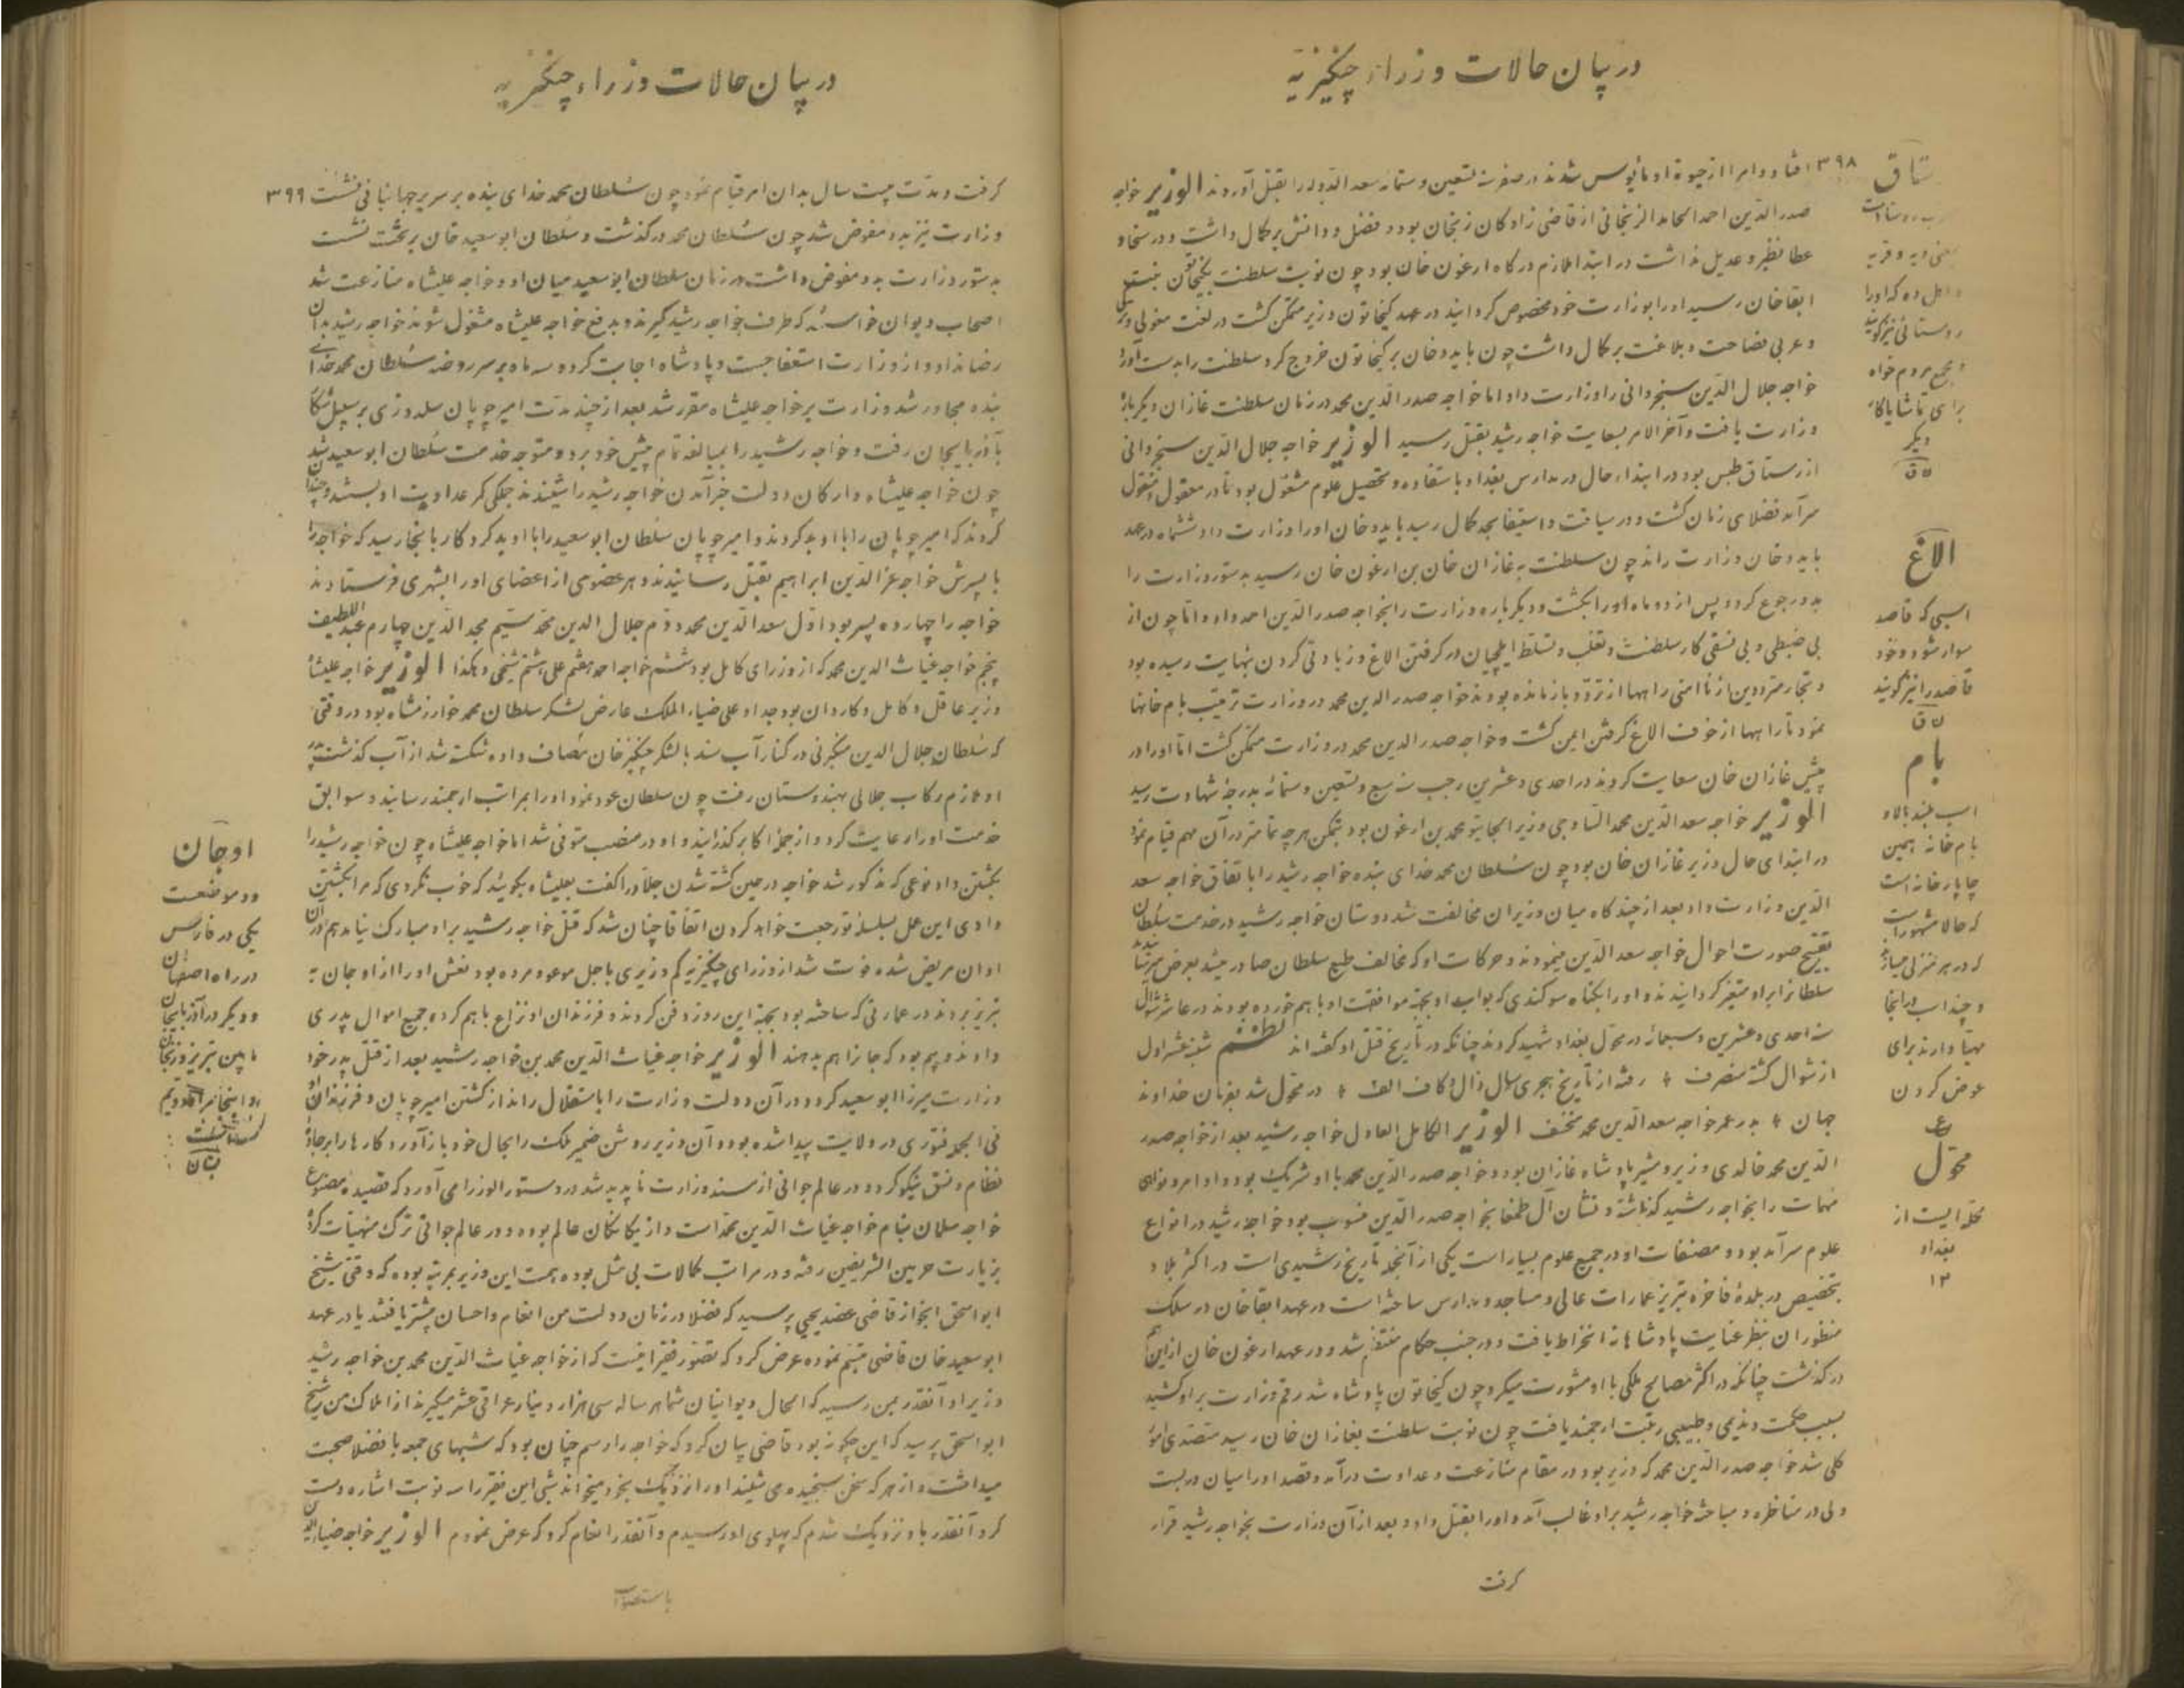 در بیان حالات وزراء چنگیزیه
۳۹۸
افتاد و امرا از حیوة او مأیوس شدند در صفر سنه تسعین و ستمائه سعد الدوله را بقتل آوردند الوزیر خواجه
صدر الدین احمد الخالد الزنجانی از قاضی زادگان زنجان بود و فضل و دانش بر کمال داشت و در سخا و
عطا نظیر و عدیل نداشت در ابتدا ملازم درگاه ارغون خان بود چون نوبت سلطنت بکیخاتون بنت
ابقا خان رسید او را بوزارت خود مخصوص گردانید در عهد کیخاتون وزیر متمکن گشت در لغت مغولی و ترکی
و عربی فصاحت و بلاغت بر کمال داشت چون بایدو خان بر کیخاتون خروج کرد سلطنت را بدست آورد
خواجه جلال الدین سنجردانی را وزارت داد اما خواجه صدر الدین محمد در زمان سلطنت غازان دیگر باره
وزارت یافت و آخر الامر بسعایت خواجه رشید بقتل رسید الوزیر خواجه جلال الدین سنجردانی
از رستاق طبس بود در ابتداء حال در مدارس بغداد باستفاده و تحصیل علوم مشغول بود تا در معقول و منقول
سرآمد فضلای زمان گشت و در سیاقت و استیفا بحد کمال رسید بایدو خان او را وزارت داد ششماه در عهد
بایدو خان وزارت راند چون سلطنت به غازان خان بن ارغون خان رسید بدستور وزارت را
بدو رجوع کرد و پس از دو ماه او را بکشت و دیگر باره وزارت را بخواجه صدر الدین احمد داد و اما چون از
بی ضبطی و بی نسقی کار سلطنت و تغلب و تسلط ایلچیان در گرفتن الاغ و زیادتی کردن بنهایت رسیده بود
و تجار مترددین از ناامنی راهها از تردد بازمانده بودند خواجه صدر الدین محمد در وزارت ترتیب یام خانها
نمود تا راهها از خوف الاغ گرفتن ایمن گشت و خواجه صدر الدین محمد در وزارت متمکن گشت اما او را در
پیش غازان خان سعایت کردند در احدی و عشرین رجب سنه سبع و تسعین و ستمائه بدرجه شهادت رسید
الوزیر خواجه سعد الدین محمد الساوجی وزیر الجایتو محمد بن ارغون بود بتمکن هر چه تمامتر در آن مهم قیام نمود
در ابتدای حال وزیر غازان خان بود چون سلطان محمد خدای بنده خواجه رشید را باتفاق خواجه سعد
الدین وزارت داد بعد از چند گاه میان وزیران مخالفت شد دوستان خواجه رشید در خدمت سلطان
تقبیح صورت احوال خواجه سعد الدین مینمودند و حرکات او که مخالف طبع سلطان صادر میشد بعرض میرسانیدند
سلطانرا بر او متغیر گردانیدند و او را بگناه سوگندی که بواب او بجهة موافقت او باهم خورده بودند در عاشر شوال
سنه احدی و عشرین و سبعمائه در محول بغداد شهید کردند چنانکه در تاریخ قتل او گفته اند نظم شنبه عشر اول
از شوال گشته منصرف ٭ رفته از تاریخ هجری سال ذال و کاف الف ٭ در محول شد بفرمان خداوند
جهان ٭ بدر عمر خواجه سعد الدین محمد منخسف الوزیر الکامل العادل خواجه رشید بعد از خواجه صدر
الدین محمد خالدی وزیر و مشیر پادشاه غازان بود و خواجه صدر الدین محمد با او شریک بود و اوامر و نواهی
مهمات را بخواجه رشید گذاشته و نشان آل طمغا بخواجه صدر الدین منسوب بود خواجه رشید در انواع
علوم سرآمد بود و مصنفات او در جمیع علوم بسیار است یکی از آنجمله تاریخ رشیدی است در اکثر بلاد
بتخصیص در بلدهٔ فاخره تبریز عمارات عالی و مساجد و مدارس ساخته است در عهد ابقا خان در سلک
منظوران بنظر عنایت پادشاهانه انخراط یافت و در جنب حکام منتظم شد و در عهد ارغون خان از این هم
درگذشت چنانکه در اکثر مصالح ملکی با او مشورت میکرد و چون کیخاتون پادشاه شد رقم وزارت بر او کشید
بسبب حکمت و ندیمی و طبیبی رتبت ارجمند یافت چون نوبت سلطنت بغازان خان رسید متصدی امور
کلی شد خواجه صدر الدین محمد که وزیر بود در مقام منازعت و عداوت درآمد و قصد او را میان دربست
ولی در مناظره و مباحثه خواجه رشید بر او غالب آمد و او را بقتل داد و بعد از آن وزارت بخواجه رشید قرار
گرفت
ستاق
معنی دیه و قریه
و اهل ده که او را
روستائی نیز گویند
و مجمع مردم خواه
برای تماشا یا کار
دیگر
ق
الاغ
اسبی که قاصد
سوار شود و خود
قاصد را نیز گویند
ق
یام
اسب بلند بالا و
یام خانه همین
چاپار خانه است
که حالا مشهور است
که در هر منزلی میسازند
و چند اسب در اینجا
مهیا دارند برای
عوض کردن
ع
محول
محله ایست از
بغداد
۱۲
در بیان حالات وزراء چنگیزیه
۳۹۹
گرفت و مدت بیست سال بدان امر قیام نمود چون سلطان محمد خدای بنده بر سریر جهانبانی نشست
وزارت نیز بدو مفوض شد چون سلطان محمد درگذشت و سلطان ابو سعید خان بر تخت نشست
بدستور وزارت بدو مفوض داشت در زمان سلطان ابو سعید میان او و خواجه علیشاه منازعت شد
اصحاب دیوان خواستند که طرف خواجه رشید گیرند و بدفع خواجه علیشاه مشغول شوند خواجه رشید بدان
رضا نداد و از وزارت استعفا جست و پادشاه اجابت کرده سه ماه بر سر روضه سلطان محمد خدای
بنده مجاور شد وزارت بر خواجه علیشاه مقرر شد بعد از چند مدت امیر چوپان سلدوزی بر سبیل شکار
بآذربایجان رفت و خواجه رشید را بمبالغه تمام پیش خود برد و متوجه خدمت سلطان ابو سعید شد
چون خواجه علیشاه و ارکان دولت خبر آمدن خواجه رشید را شنیدند جملگی کمر عداوت او بستند و چندان
کردند که امیر چوپان را با او بد کردند و امیر چوپان سلطان ابو سعید را با او بد کرد و کار بانجا رسید که خواجه را
با پسرش خواجه عز الدین ابراهیم بقتل رسانیدند و هر عضوی از اعضای او را بشهری فرستادند
خواجه را چهارده پسر بود اول سعد الدین محمد دوم جلال الدین محمد سیم مجد الدین چهارم عبد اللطیف
پنجم خواجه غیاث الدین محمد که از وزرای کامل بود ششم خواجه احمد هفتم علی هشتم شیخی و هکذا الوزیر خواجه علیشاه
وزیر عاقل و کامل و کاردان بود جد او علی ضیاء الملک عارض لشکر سلطان محمد خوارزمشاه بود در وقتی
که سلطان جلال الدین منکبرنی در کنار آب سند بالشکر چنگیز خان مصاف داده شکسته شد از آب گذشت پدر
او ملازم رکاب جلالی بهندوستان رفت چون سلطان عود نمود او را بمراتب ارجمند رسانید و سوابق
خدمت او را رعایت کرد و از جمله اکابر گذرانید و او در منصب متوفی شد اما خواجه علیشاه چون خواجه رشید را
بکشتن داد نوعی که مذکور شد خواجه در حین کشته شدن جلاد را گفت بعلیشاه بگوئید که خوب نکردی که مرا بکشتن
دادی این عمل بسلسله تو رجعت خواهد کردن اتفاقا چنان شد که قتل خواجه رشید بر او مبارک نیامد هم در آن
اوان مریض شده فوت شد از وزرای چنگیزیه کم وزیری باجل موعود مرده بود نعش او را از اوجان به
تبریز بردند در عمارتی که ساخته بود بجهة این روز دفن کردند و فرزندان او نزاع باهم کرده جمیع اموال پدری
دادند و بیم بود که جانرا هم بدهند الوزیر خواجه غیاث الدین محمد بن خواجه رشید بعد از قتل پدر خود
وزارت میرزا ابو سعید کرد و در آن دولت وزارت را باستقلال راند از کشتن امیر چوپان و فرزندان او
فی الجمله فتوری در ولایت پیدا شده بود و آن وزیر روشن ضمیر ملک را بحال خود باز آورد و کارها را بر جاده
نظام و نسق نیکو کرد و در عالم جوانی از مسند وزارت ناپدید شد در دستور الوزرا می آورد که قصیده مصنوع
خواجه سلمان بنام خواجه غیاث الدین محمد است و از نیکان عالم بوده و در عالم جوانی ترک منهیات کرده
بزیارت حرمین الشریفین رفته و در مراتب کمالات بی مثل بوده همت این وزیر بمرتبه بوده که وقتی شیخ
ابو اسحق اینجو از قاضی عضد یحیی پرسید که فضلا در زمان دولت من انعام و احسان بیشتر یافتند یا در عهد
ابو سعید خان قاضی تبسم نموده عرض کرد که تصور فقیر اینست که از خواجه غیاث الدین محمد بن خواجه رشید
وزیر او آنقدر بمن رسید که الحال دیوانیان شما هر ساله سی هزار دینار عراقی عشر میگیرند از املاک من شیخ
ابو اسحق پرسید که این چگونه بود قاضی بیان کرد که خواجه را رسم چنان بود که شبهای جمعه با فضلا صحبت
میداشت و از هر که سخن سنجیده می شنید او را نزدیک بخود میخواند شبی این فقیر را سه نوبت اشاره دست
کرد آنقدر باو نزدیک شدم که پهلوی او رسیدم و آنقدر انعام کرد که عرض نمودم الوزیر خواجه ضیاء الدین
باستصواب
اوجان
دو موضعست
یکی در فارس
در راه اصفهان
و دیگر در آذربایجان
مابین تبریز و زنجان